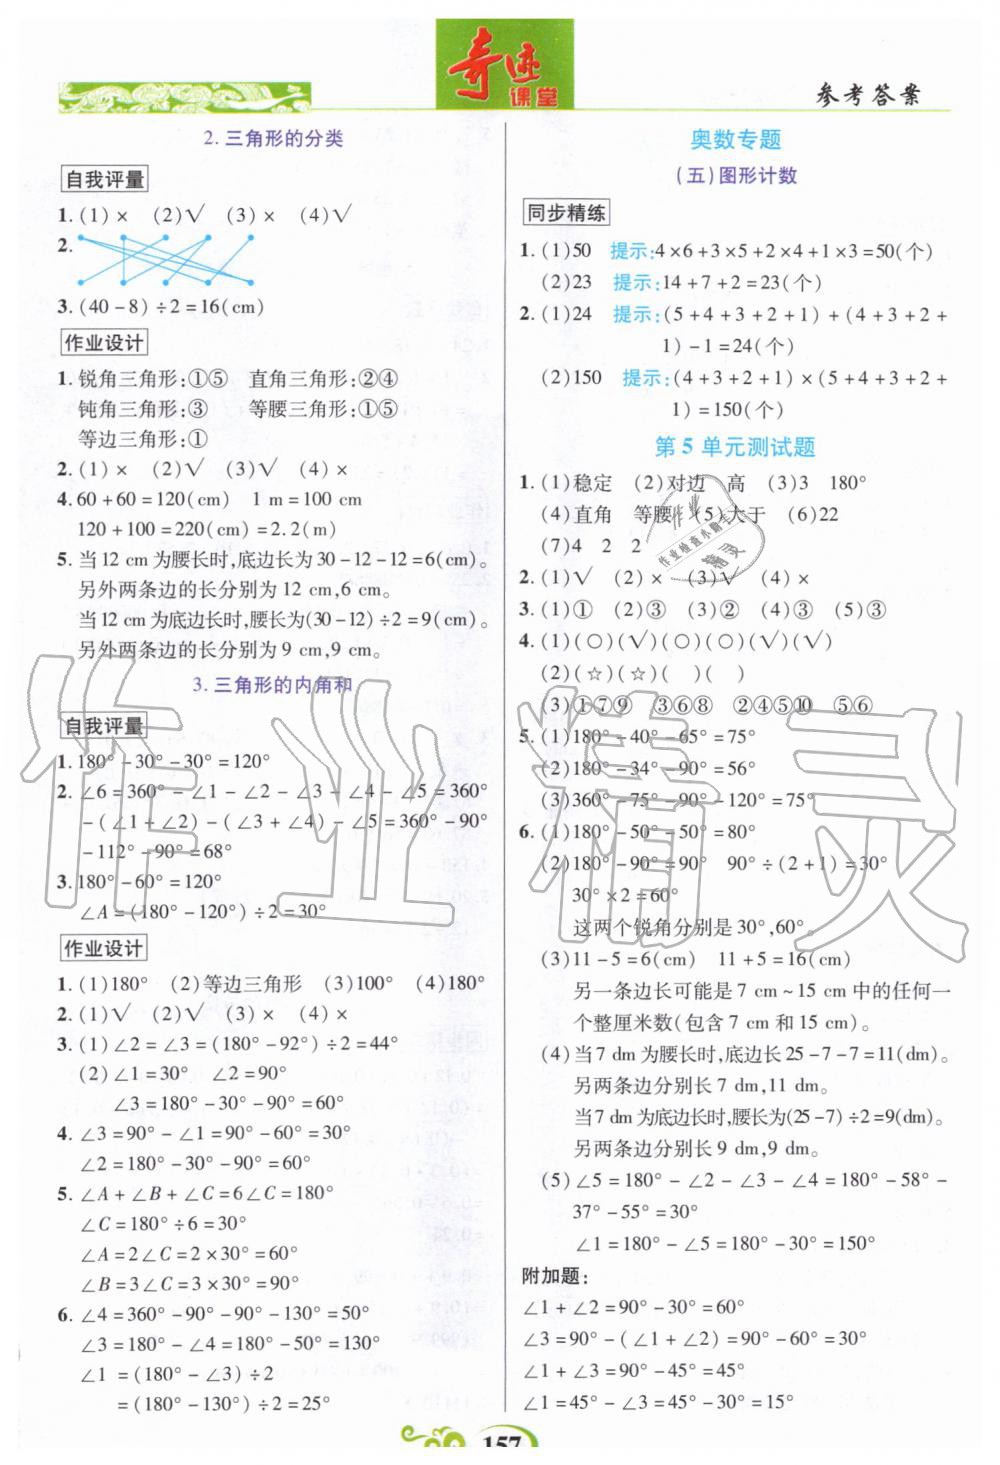 奇迹
课堂
参考答案
2. 三角形的分类
自我评量
1. (1)× (2)√ (3)× (4)√
2.
3. (40-8)÷2=16(cm)
作业设计
1. 锐角三角形:①⑤ 直角三角形:②④
钝角三角形:③ 等腰三角形:①⑤
等边三角形:①
2. (1)× (2)√ (3)√ (4)×
4. 60+60=120(cm) 1 m=100 cm
120+100=220(cm)=2.2(m)
5. 当12 cm为腰长时,底边长为30-12-12=6(cm)。
另外两条边的长分别为12 cm,6 cm。
当12 cm为底边长时,腰长为(30-12)÷2=9(cm)。
另外两条边的长分别为9 cm,9 cm。
3. 三角形的内角和
自我评量
1. 180°-30°-30°=120°
2. ∠6=360°-∠1-∠2-∠3-∠4-∠5=360°
-(∠1+∠2)-(∠3+∠4)-∠5=360°-90°
-112°-90°=68°
3. 180°-60°=120°
∠A=(180°-120°)÷2=30°
作业设计
1. (1)180° (2)等边三角形 (3)100° (4)180°
2. (1)√ (2)√ (3)× (4)×
3. (1)∠2=∠3=(180°-92°)÷2=44°
(2)∠1=30° ∠2=90°
∠3=180°-30°-90°=60°
4. ∠3=90°-∠1=90°-60°=30°
∠2=180°-30°-90°=60°
5. ∠A+∠B+∠C=6∠C=180°
∠C=180°÷6=30°
∠A=2∠C=2×30°=60°
∠B=3∠C=3×30°=90°
6. ∠4=360°-90°-90°-130°=50°
∠3=180°-∠4=180°-50°=130°
∠1 =(180°-∠3)÷2
=(180°-130°)÷2=25°
奥数专题
(五)图形计数
同步精练
1. (1)50 提示:4×6+3×5+2×4+1×3=50(个)
(2)23 提示:14+7+2=23(个)
2. (1)24 提示:(5+4+3+2+1)+(4+3+2+
1)-1=24(个)
(2)150 提示:(4+3+2+1)×(5+4+3+2+
1)=150(个)
第5单元测试题
1. (1)稳定 (2)对边 高 (3)3 180°
(4)直角 等腰 (5)大于 (6)22
(7)4 2 2
2. (1)√ (2)× (3)√ (4)×
3. (1)① (2)③ (3)② (4)③ (5)③
4. (1)(○)(√)(○)(○)(√)(√)
(2)(☆)(☆)( )( )
(3)①⑦⑨ ③⑥⑧ ②④⑤⑩ ⑤⑥
5. (1)180°-40°-65°=75°
(2)180°-34°-90°=56°
(3)360°-75°-90°-120°=75°
6. (1)180°-50°-50°=80°
(2)180°-90°=90° 90°÷(2+1)=30°
30°×2=60°
这两个锐角分别是30°,60°。
(3)11-5=6(cm) 11+5=16(cm)
另一条边长可能是7 cm~15 cm中的任何一
个整厘米数(包含7 cm和15 cm)。
(4)当7 dm为腰长时,底边长25-7-7=11(dm)。
另两条边分别长7 dm,11 dm。
当7 dm为底边长时,腰长为(25-7)÷2=9(dm)。
另两条边分别长9 dm,9 dm。
(5)∠5=180°-∠2-∠3-∠4=180°-58°-
37°-55°=30°
∠1=180°-∠5=180°-30°=150°
附加题:
∠1+∠2=90°-30°=60°
∠3=90°-(∠1+∠2)=90°-60°=30°
∠1+∠3=90°-45°=45°
∠1=45°-∠3=45°-30°=15°
157
作业精灵